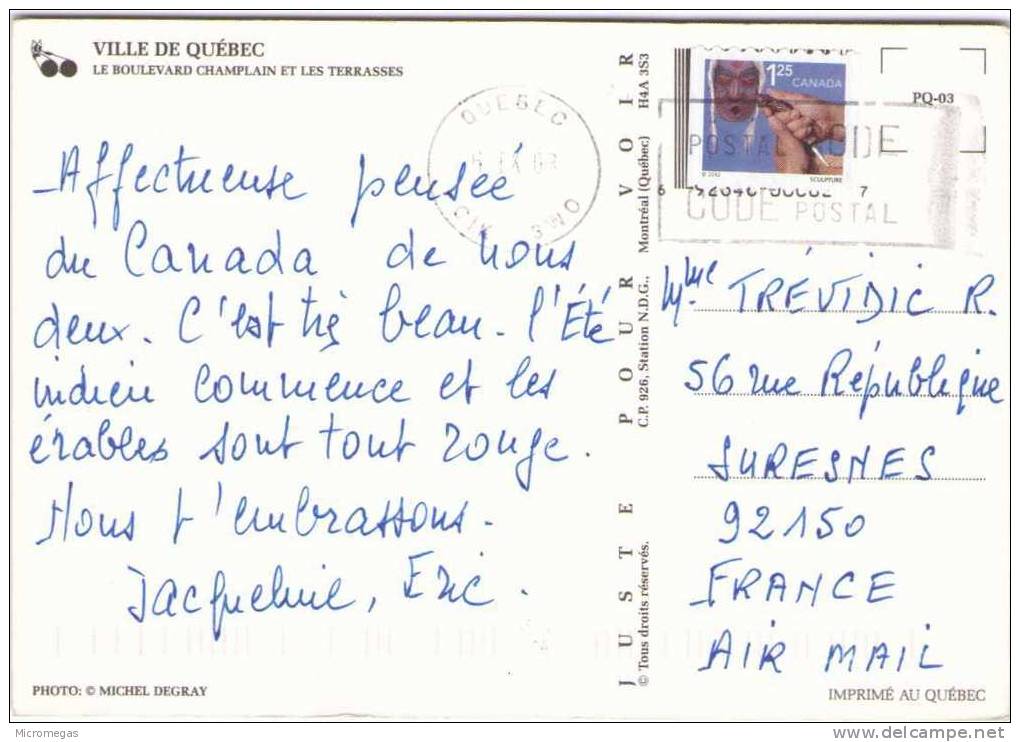 VILLE DE QUÉBEC
LE BOULEVARD CHAMPLAIN ET LES TERRASSES
Affectueuse pensée
du Canada de nous
deux. C'est très beau. l'Été
indien commence et les
érables sont tout rouge.
Nous t'embrassons.
Jacqueline, Eric.
PHOTO: © MICHEL DEGRAY
JUSTE POUR VOIR
© Tous droits réservés. C.P. 926, Station N.D.G., Montréal (Québec) H4A 3S3
QUEBEC
125 CANADA
© 2002 SCULPTURE
POSTAL CODE
CODE POSTAL
PQ-03
Mme TRÉVIDIC R.
56 rue République
SURESNES
92150
FRANCE
AIR MAIL
IMPRIMÉ AU QUÉBEC
Micromegas
delcampe.net